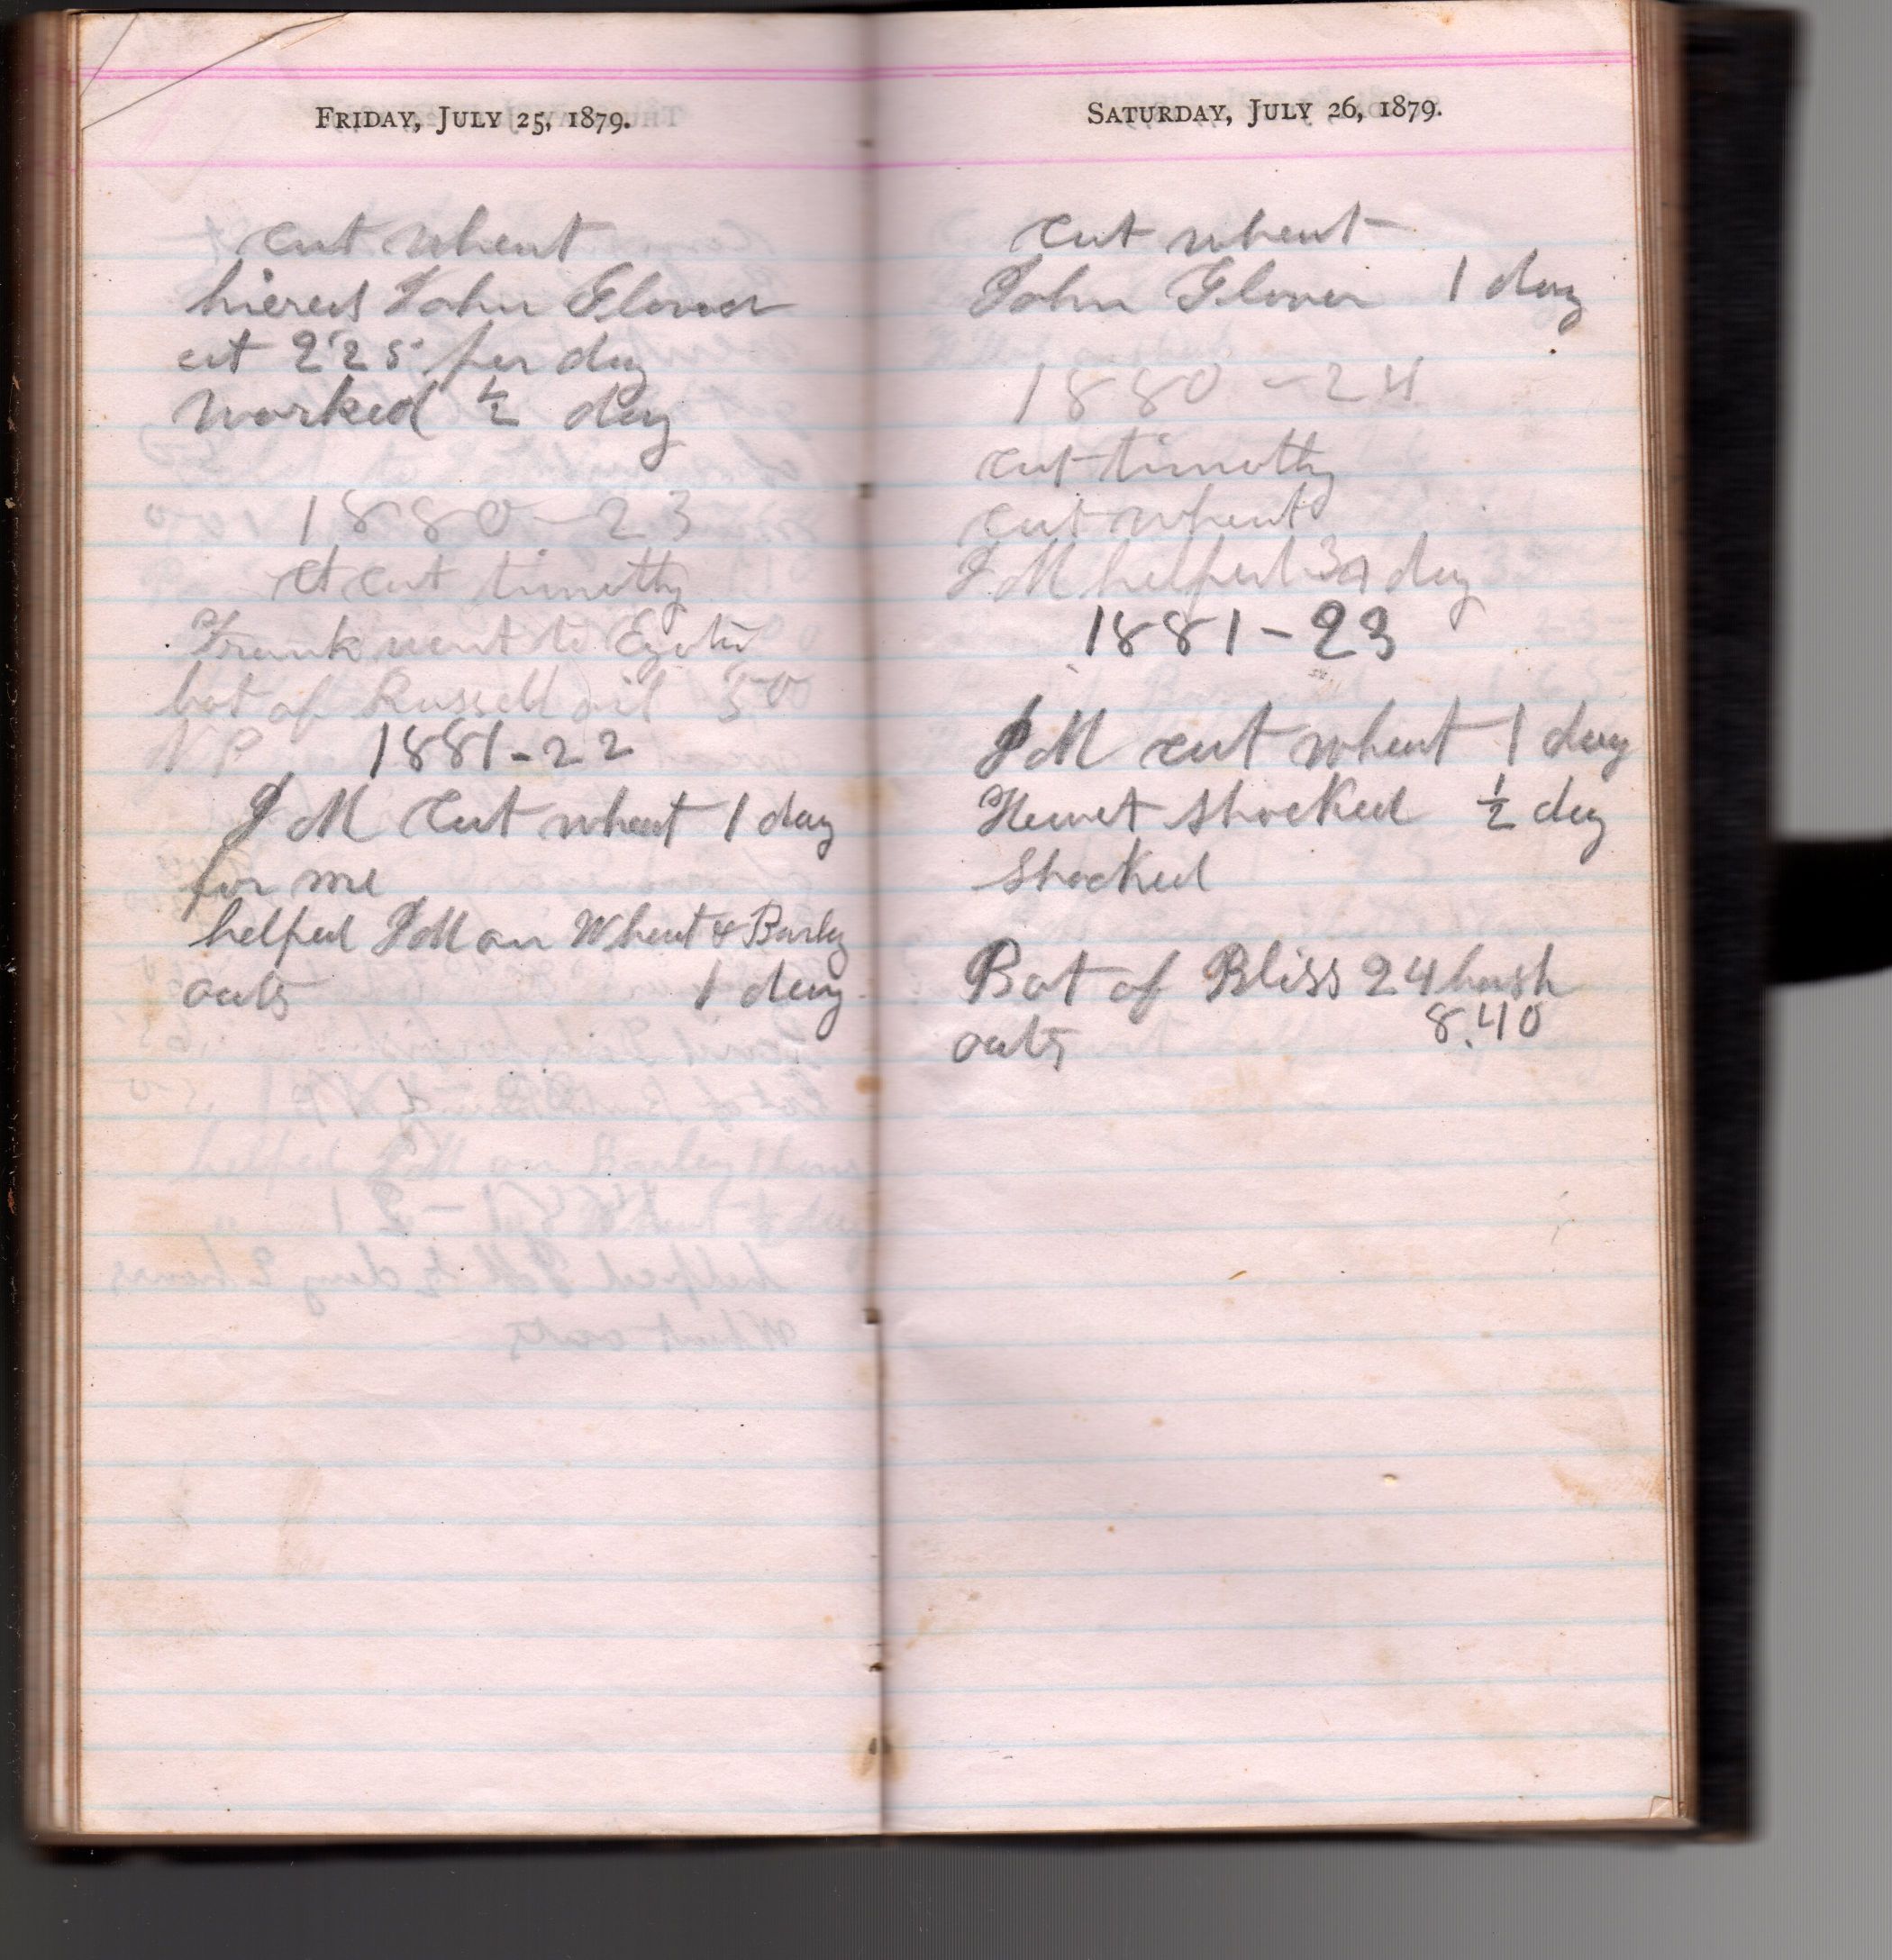 FRIDAY, JULY 25, 1879.
cut wheat
hiered John Glover
at 2.25 per day
worked 1/2 day
1880-23
ct cut timothy
Frank went to
bot of Russell oil 50
N P
1881-22
J M cut wheat 1 day
for me
helped J M on Wheat & Barley
oats 1 day
SATURDAY, JULY 26, 1879.
cut wheat
John Glover 1 day
1880-24
cut timothy
cut wheat
J M helped day
1881-23
J M cut wheat 1 day
shocked 1/2 day
shocked
Bot of Bliss 24 bush
oats 8.40